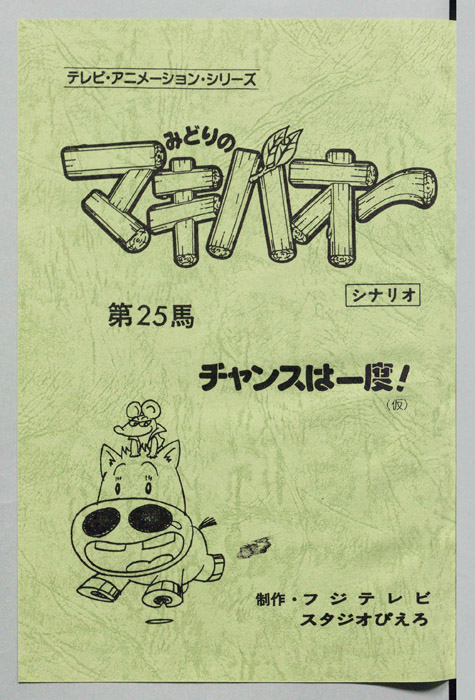 テレビ・アニメーション・シリーズ
みどりの
マキバオー
シナリオ
第25馬
チャンスは一度!
(仮)
制作・フジテレビ
スタジオぴえろ